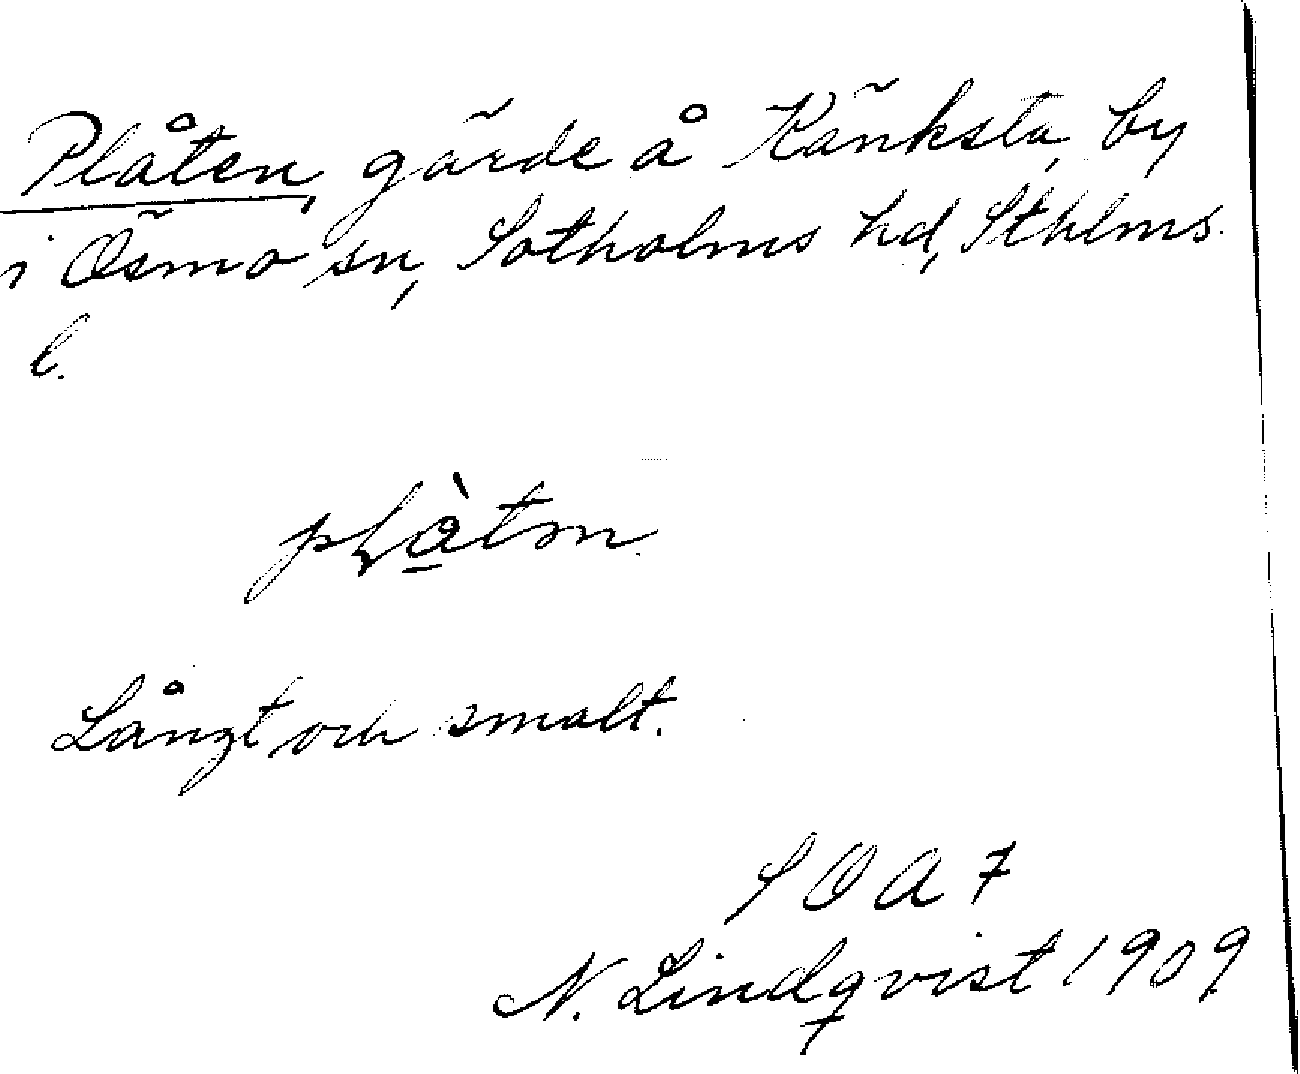 Plåten, gärde å Känksta, by
i Ösmo sn, Sotholms hd, Sthlms
l.
Långt och smalt.
SOA 7
N. Lindqvist 1909